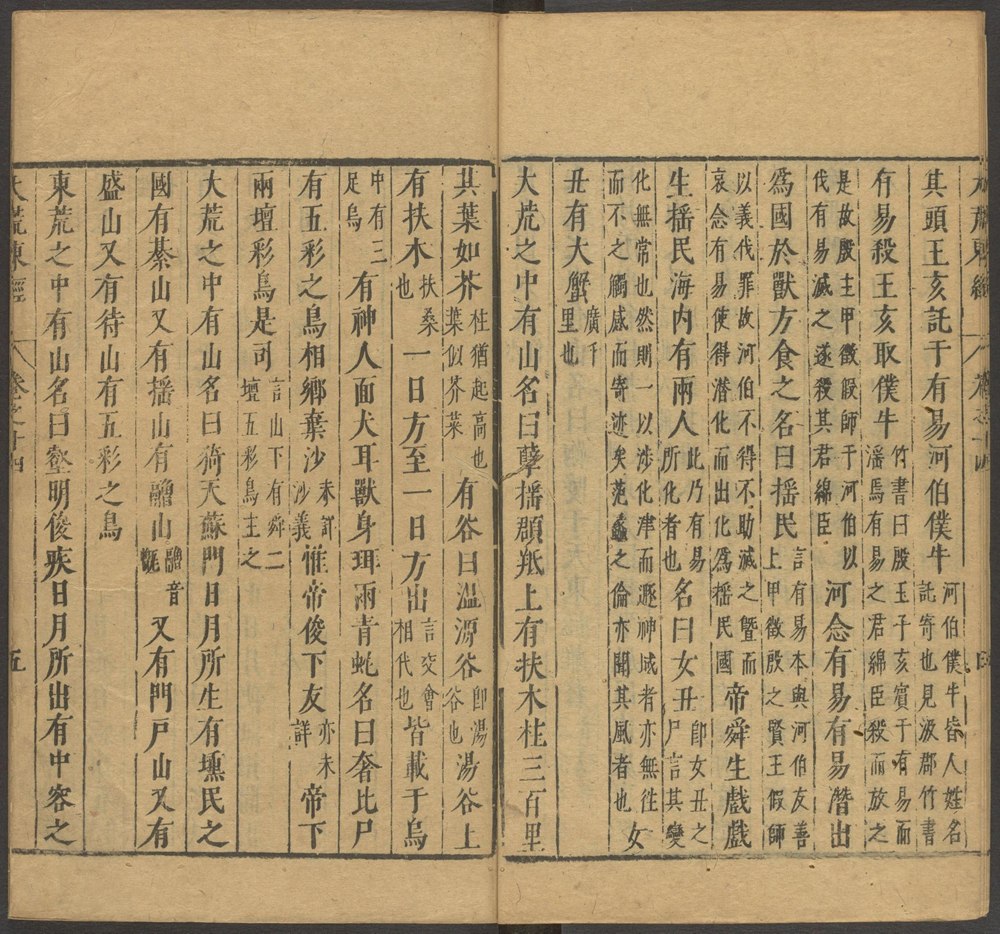 大荒東經 卷之十四 四
其頭王亥託于有易河伯僕牛河伯僕牛皆人姓名託寄也見汲郡竹書
有易殺王亥取僕牛竹書曰殷王子亥賓于有易而淫焉有易之君緜臣殺而放之
是故殷主甲微假師于河伯以伐有易滅之遂殺其君緜臣河念有易有易潛出
爲國於獸方食之名曰揺民言有易本與河伯友善上甲微殷之賢王假師
以義伐罪故河伯不得不助滅之曁而哀念有易使得潛化而出化爲揺民國帝舜生戲戲
生揺民海内有兩人此乃有易所化者也名曰女丑即女丑之尸言其變
化無常也然則一以涉化津而遯神域者亦無徃而不之觸感而寄迹矣范蠡之倫亦聞其風者也女
丑有大蟹廣千里也
大荒之中有山名曰孽揺頵羝上有扶木柱三百里
其葉如芥柱猶起高也葉似芥菜有谷曰温源谷即湯谷也湯谷上
有扶木扶桑也一日方至一日方出言交會相代也皆載于烏
中有三足烏有神人面犬耳獸身珥兩青虵名曰奢比尸
有五彩之鳥相鄉棄沙未詳沙義惟帝俊下友亦未詳帝下
兩壇彩鳥是司言山下有舜二壇五彩鳥主之
大荒之中有山名曰猗天蘇門日月所生有壎民之
國有綦山又有揺山有䰝山䰝音甑又有門戸山又有
盛山又有待山有五彩之鳥
東荒之中有山名曰壑明俊疾日月所出有中容之
大荒東經 卷之十四 五